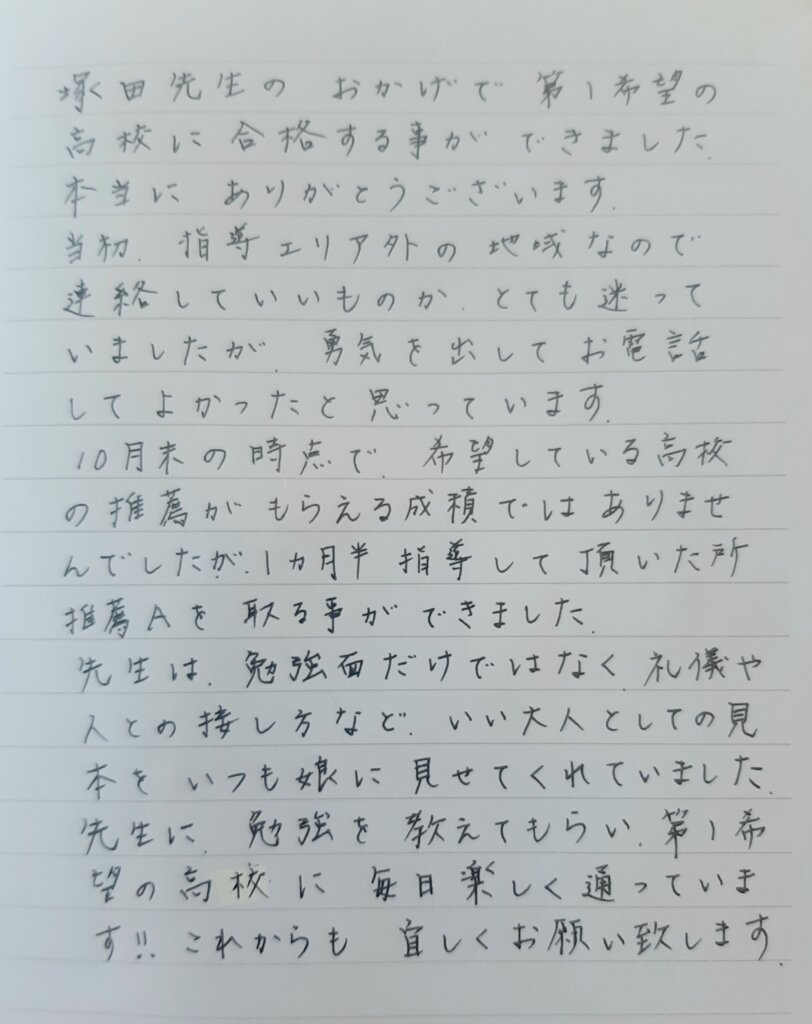 塚田先生の おかげで 第1希望の
高校に 合格する事が できました.
本当に ありがとうございます.
当初. 指導エリア外の 地域なので
連絡していいものか. とても迷って
いましたが. 勇気を出して お電話
して よかったと 思っています.
10月末の時点で. 希望している高校
の推薦が もらえる成積ではありませ
んでしたが. 1ヵ月半 指導して頂いた所
推薦Aを 取る事ができました.
先生は. 勉強面だけではなく. 礼儀や
人との接し方など. いい大人としての見
本を いつも娘に 見せてくれていました.
先生に. 勉強を 教えてもらい. 第1希
望の高校に 毎日楽しく通っていま
す!! これからも 宜しくお願い致します.